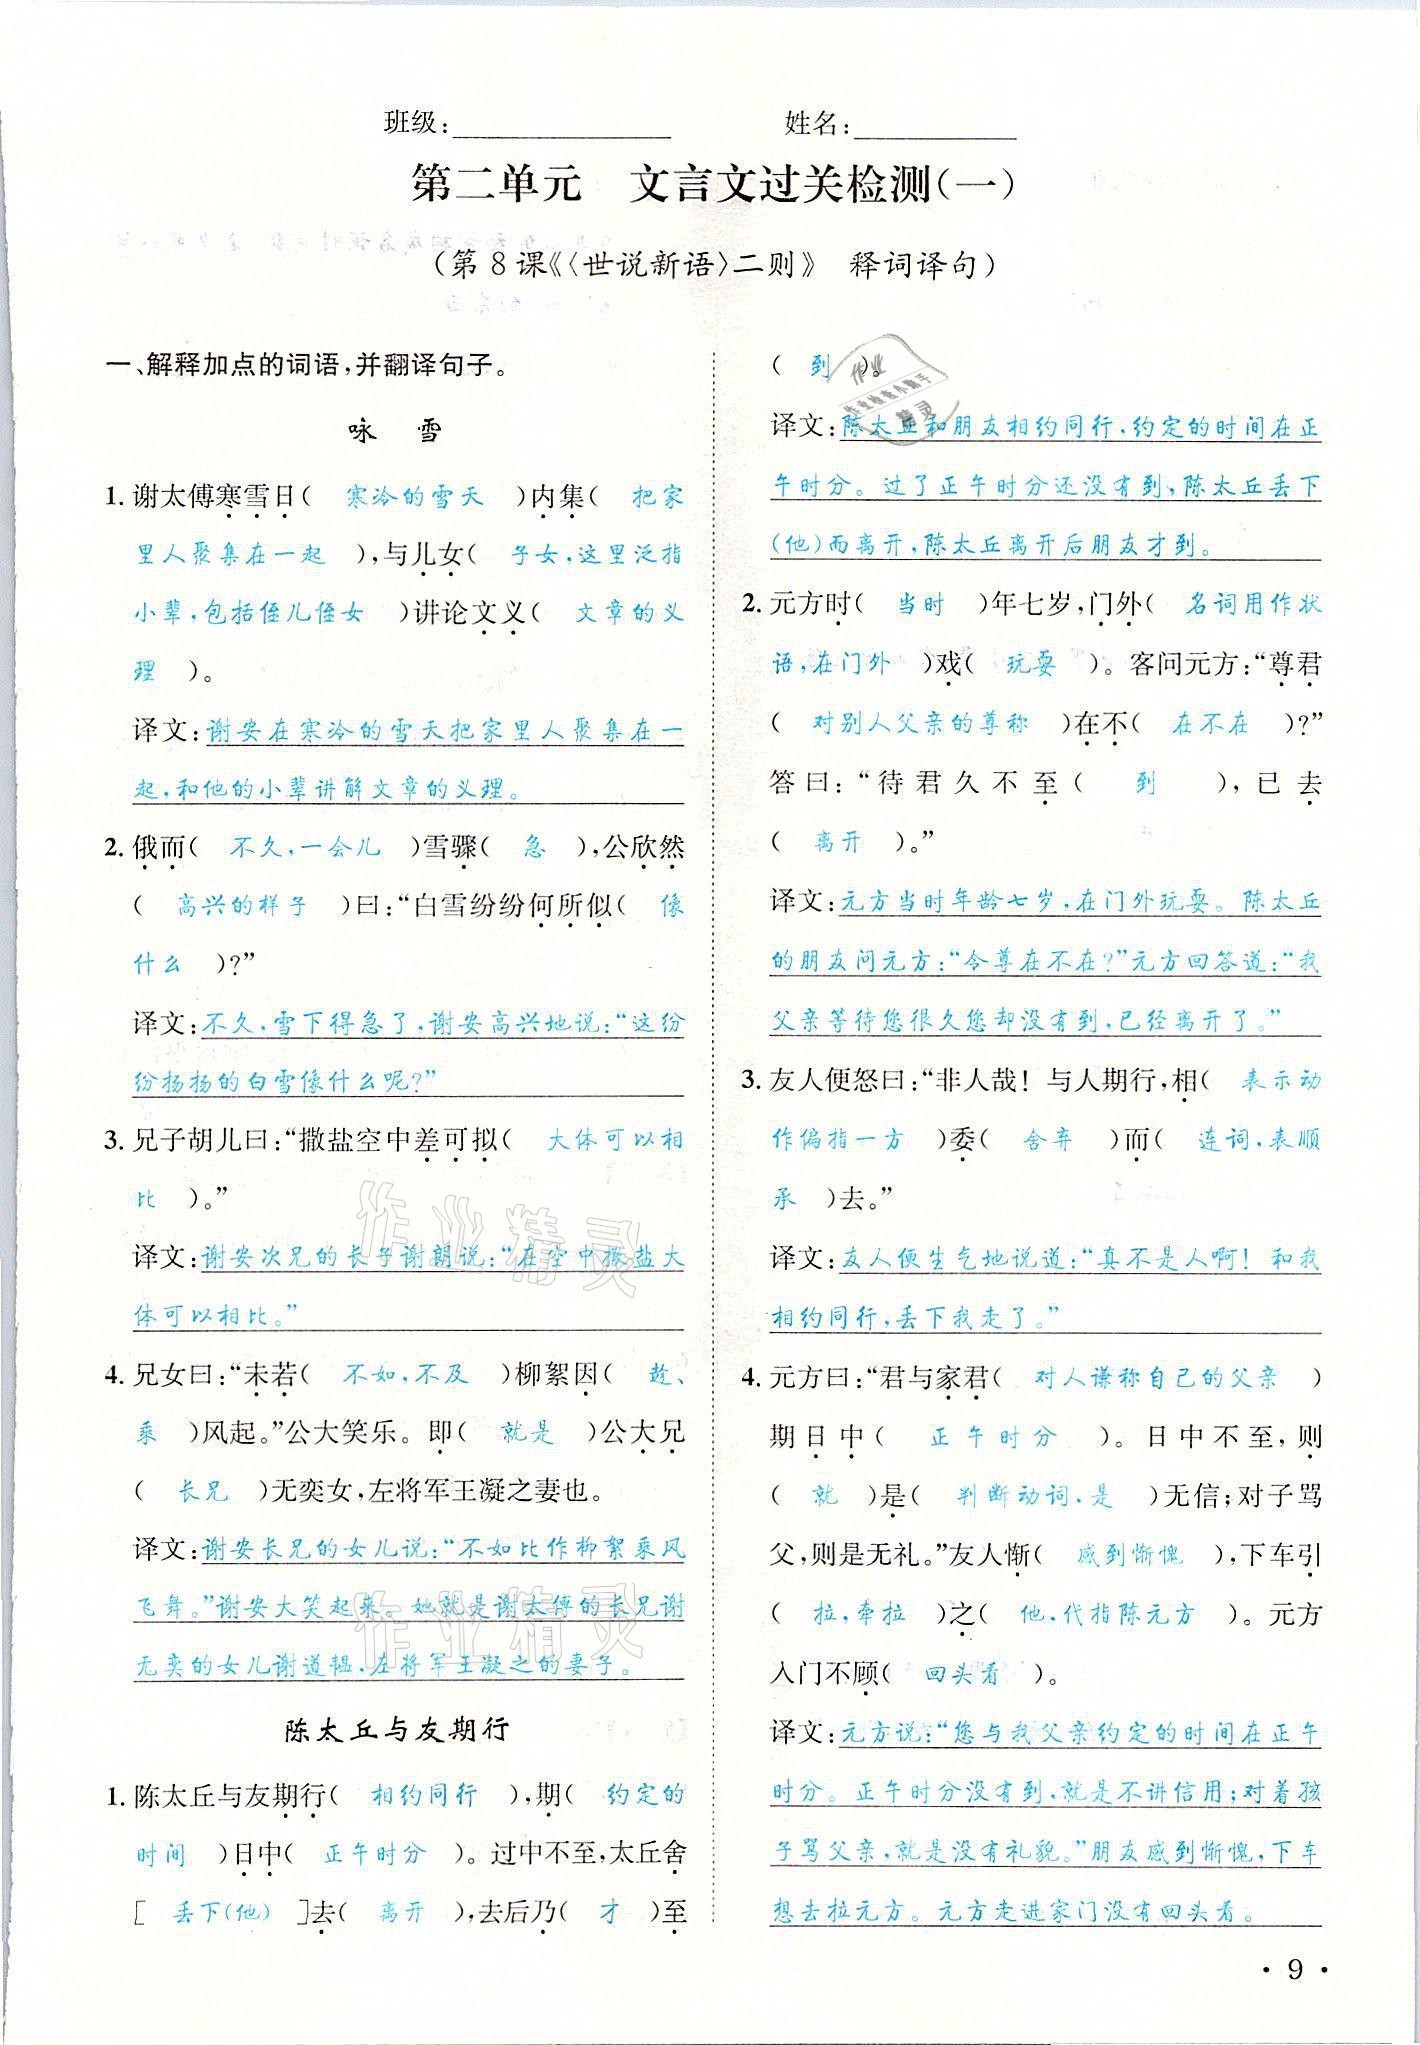 班级:____________ 姓名:____________
第二单元 文言文过关检测(一)
(第8课《〈世说新语〉二则》 释词译句)
一、解释加点的词语,并翻译句子。
咏 雪
1. 谢太傅寒雪日( 寒冷的雪天 )内集( 把家
里人聚集在一起 ),与儿女( 子女,这里泛指
小辈,包括侄儿侄女 )讲论文义( 文章的义
理 )。
译文:谢安在寒冷的雪天把家里人聚集在一
起,和他的小辈讲解文章的义理。
2. 俄而( 不久,一会儿 )雪骤( 急 ),公欣然
( 高兴的样子 )曰:“白雪纷纷何所似( 像
什么 )?”
译文:不久,雪下得急了,谢安高兴地说:“这纷
纷扬扬的白雪像什么呢?”
3. 兄子胡儿曰:“撒盐空中差可拟( 大体可以相
比 )。”
译文:谢安次兄的长子谢朗说:“在空中撒盐大
体可以相比。”
4. 兄女曰:“未若( 不如,不及 )柳絮因( 趁、
乘 )风起。”公大笑乐。即( 就是 )公大兄
( 长兄 )无奕女,左将军王凝之妻也。
译文:谢安长兄的女儿说:“不如比作柳絮乘风
飞舞。”谢安大笑起来。她就是谢太傅的长兄谢
无奕的女儿谢道韫,左将军王凝之的妻子。
陈太丘与友期行
1. 陈太丘与友期行( 相约同行 ),期( 约定的
时间 )日中( 正午时分 )。过中不至,太丘舍
[ 丢下(他) ]去( 离开 ),去后乃( 才 )至
( 到 )。
译文:陈太丘和朋友相约同行,约定的时间在正
午时分。过了正午时分还没有到,陈太丘丢下
(他)而离开,陈太丘离开后朋友才到。
2. 元方时( 当时 )年七岁,门外( 名词用作状
语,在门外 )戏( 玩耍 )。客问元方:“尊君
( 对别人父亲的尊称 )在不( 在不在 )?”
答曰:“待君久不至( 到 ),已去
( 离开 )。”
译文:元方当时年龄七岁,在门外玩耍。陈太丘
的朋友问元方:“令尊在不在?”元方回答道:“我
父亲等待您很久您却没有到,已经离开了。”
3. 友人便怒曰:“非人哉!与人期行,相( 表示动
作偏指一方 )委( 舍弃 )而( 连词,表顺
承 )去。”
译文:友人便生气地说道:“真不是人啊!和我
相约同行,丢下我走了。”
4. 元方曰:“君与家君( 对人谦称自己的父亲 )
期日中( 正午时分 )。日中不至,则
( 就 )是( 判断动词,是 )无信;对子骂
父,则是无礼。”友人惭( 感到惭愧 ),下车引
( 拉,牵拉 )之( 他,代指陈元方 )。元方
入门不顾( 回头看 )。
译文:元方说:“您与我父亲约定的时间在正午
时分。正午时分没有到,就是不讲信用;对着孩
子骂父亲,就是没有礼貌。”朋友感到惭愧,下车
想去拉元方。元方走进家门没有回头看。
· 9 ·
作业精灵
作业精灵
作业
作业检查小助手
精灵